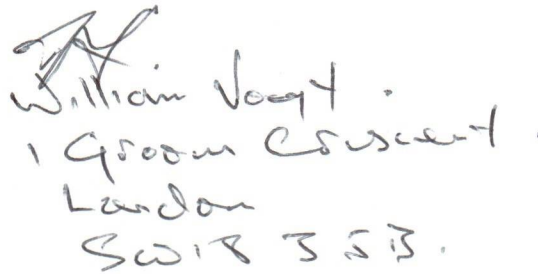 William Voegt.
1 Groom Crescent.
London
SW18 3SB.